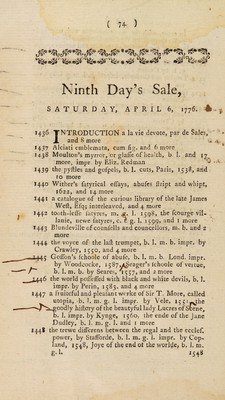 ( 74 )
Ninth Day's Sale,
SATURDAY, APRIL 6, 1776.
1436 INTRODUCTION a la vie devote, par de Sales,
and 8 more
1437 Alciati emblemata, cum fig. and 6 more
1438 Moulton's myrror, or glasse of health, b. l. and 17
more, impr. by Eliz. Redman
1439 the pystles and gospels, b. l. cuts, Paris, 1538, and
10 more
1440 Wither's satyrical essays, abuses stript and whipt,
1622, and 14 more
1441 a catalogue of the curious library of the late James
West, Esq; interleaved, and 4 more
1442 tooth-lesse satyres, m. g. l. 1598, the scourge vil-
lanie, newe satyres, c. f. g. l. 1599, and 1 more
1443 Blundeville of counsells and councellors, m. b. and 2
more
1444 the voyce of the last trumpet, b. l. m. b. impr. by
Crawley, 1550, and 4 more
1445 Gosson's schoole of abuse, b. l. m. b. Lond. impr.
by Woodcocke, 1587, Seager's schoole of vertue,
b. l. m. b. by Seares, 1557, and 2 more
1446 the world possessed with black and white devils, b. l.
impr. by Perin, 1583, and 4 more
1447 a fruitefull and pleasant worke of Sir T. More, called
utopia, b. l. m. g. l. impr. by Vele, 1551, the
goodly history of the beautyful lady Lucres of Scene,
b. l. impr. by Kynge, 1560, the ende of the Jane
Dudley, b. l. m. g. l. and 1 more
1448 the trewe differens between the regal and the eccles.
power, by Stafforde, b. l. m. g. l. impr. by Cop-
land, 1548, Joye of the end of the worlde, b. l. m.
g. l. 1548